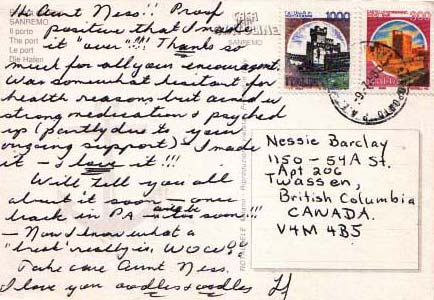 Hi Aunt Ness!! Proof
positive that I made
it "over"!!! Thanks so
much for all your encouragement.
Was somewhat hesitant for
health reasons but armed w
strong medication & psyched
up (partly due to your
ongoing support) - I made
it - I love it!!!
Will tell you all
about it soon - once
back in PA soon!!!
- Now I know what a
"break" really is, WOW!!
Take care Aunt Ness.
I love you oodles & oodles
SANREMO
Il porto
The port
Le port
Die Hafen
SANREMO
1000
ITALIA
Nessie Barclay
1150 - 54A St.
Apt 206
Twassen,
British Columbia
CANADA.
V4M 4B5